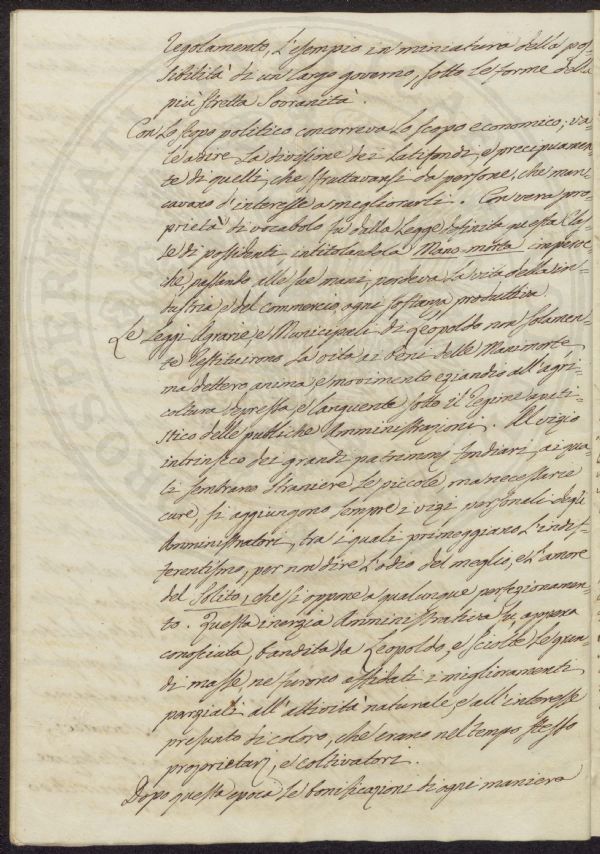 regolamento, l'esempio in miniatura della pos=
sibilità di un largo governo, sotto le forme della
più stretta Sovranità.
Con lo scopo politico concorreva lo scopo economico; va=
le a dire la divisione dei Latifondi, e precipuamen=
te di quelli, che sfruttavansi da persone, che man=
cavano d'interesse a megliorarli. Con vera pro=
prietà di vocabolo fu dalla Legge definita questa Clas=
se di possidenti intitolandola Mano-morta imperoc=
chè passando alle sue mani, perdeva la via della in=
dustria e del commercio ogni sostanza produttiva.
Le Leggi Agrarie, e Municipali di Leopoldo non solamen=
te restituirono la vita ai beni delle Manimorte,
ma dettero anima e movimento eziandio all'agri=
coltura depressa e languente sotto il regime
delle pubbliche Amministrazioni. Al vizio
intrinseco dei grandi patrimonj fondiari, ai qua=
li sembrano straniere le piccole, ma necessarie
cure, si aggiungono sempre i vizi personali degli
Amministratori, tra i quali primeggiano l'indif=
ferentismo, per non dire l'odio del meglio, e l'amore
del Solito, che si oppone a qualunque perfezionamen=
to. Questa inerzia Amministrativa fu, appena
conosciuta, bandita da Leopoldo, e sciolte le gran=
di masse, ne furono affidati i miglioramenti
parziali all'attività naturale, e all'interesse
presunto di coloro, che erano nel tempo stesso
proprietarj, e coltivatori.
Dopo questa epoca le bonificazioni di ogni maniera
PROSPERITATI